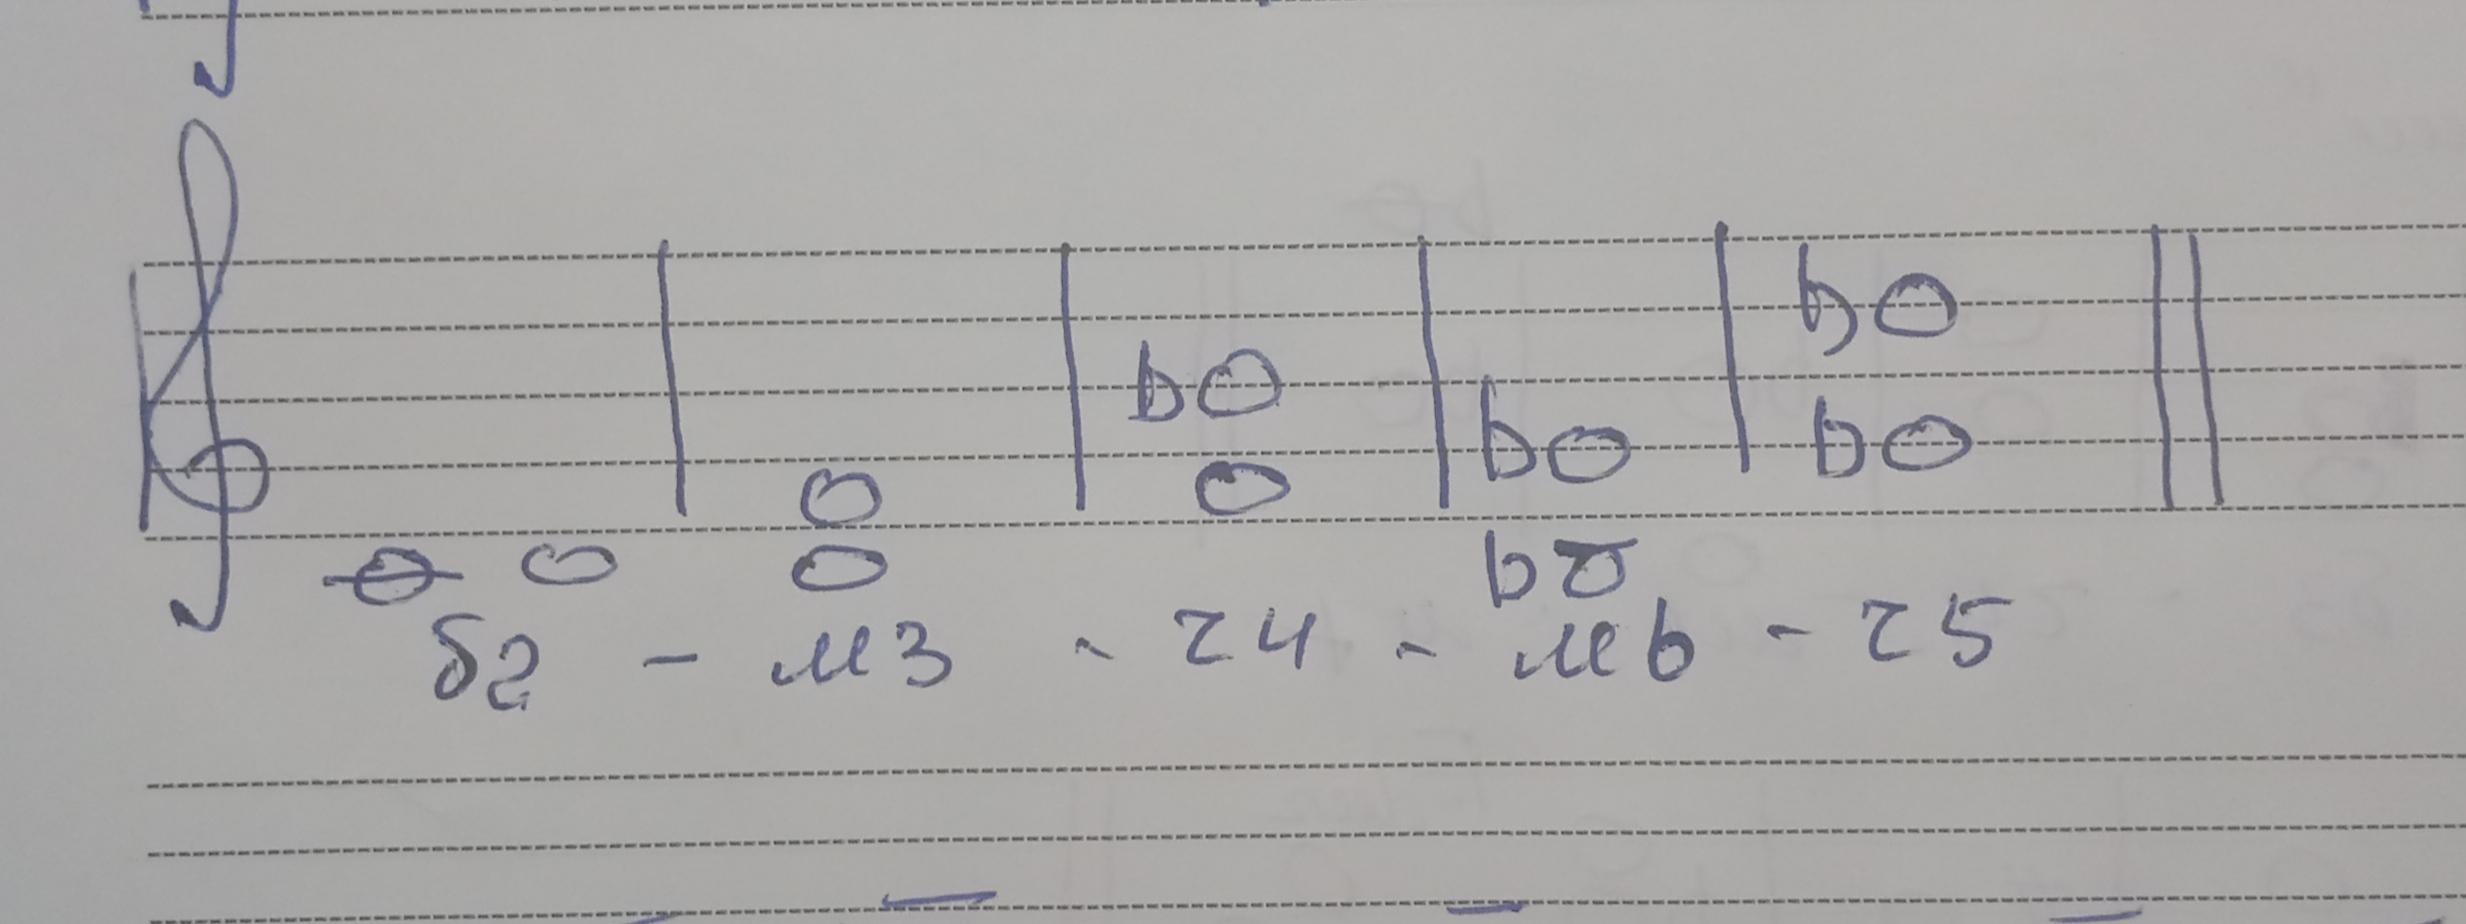 б2 - м3 - ч4 - м6 - ч5